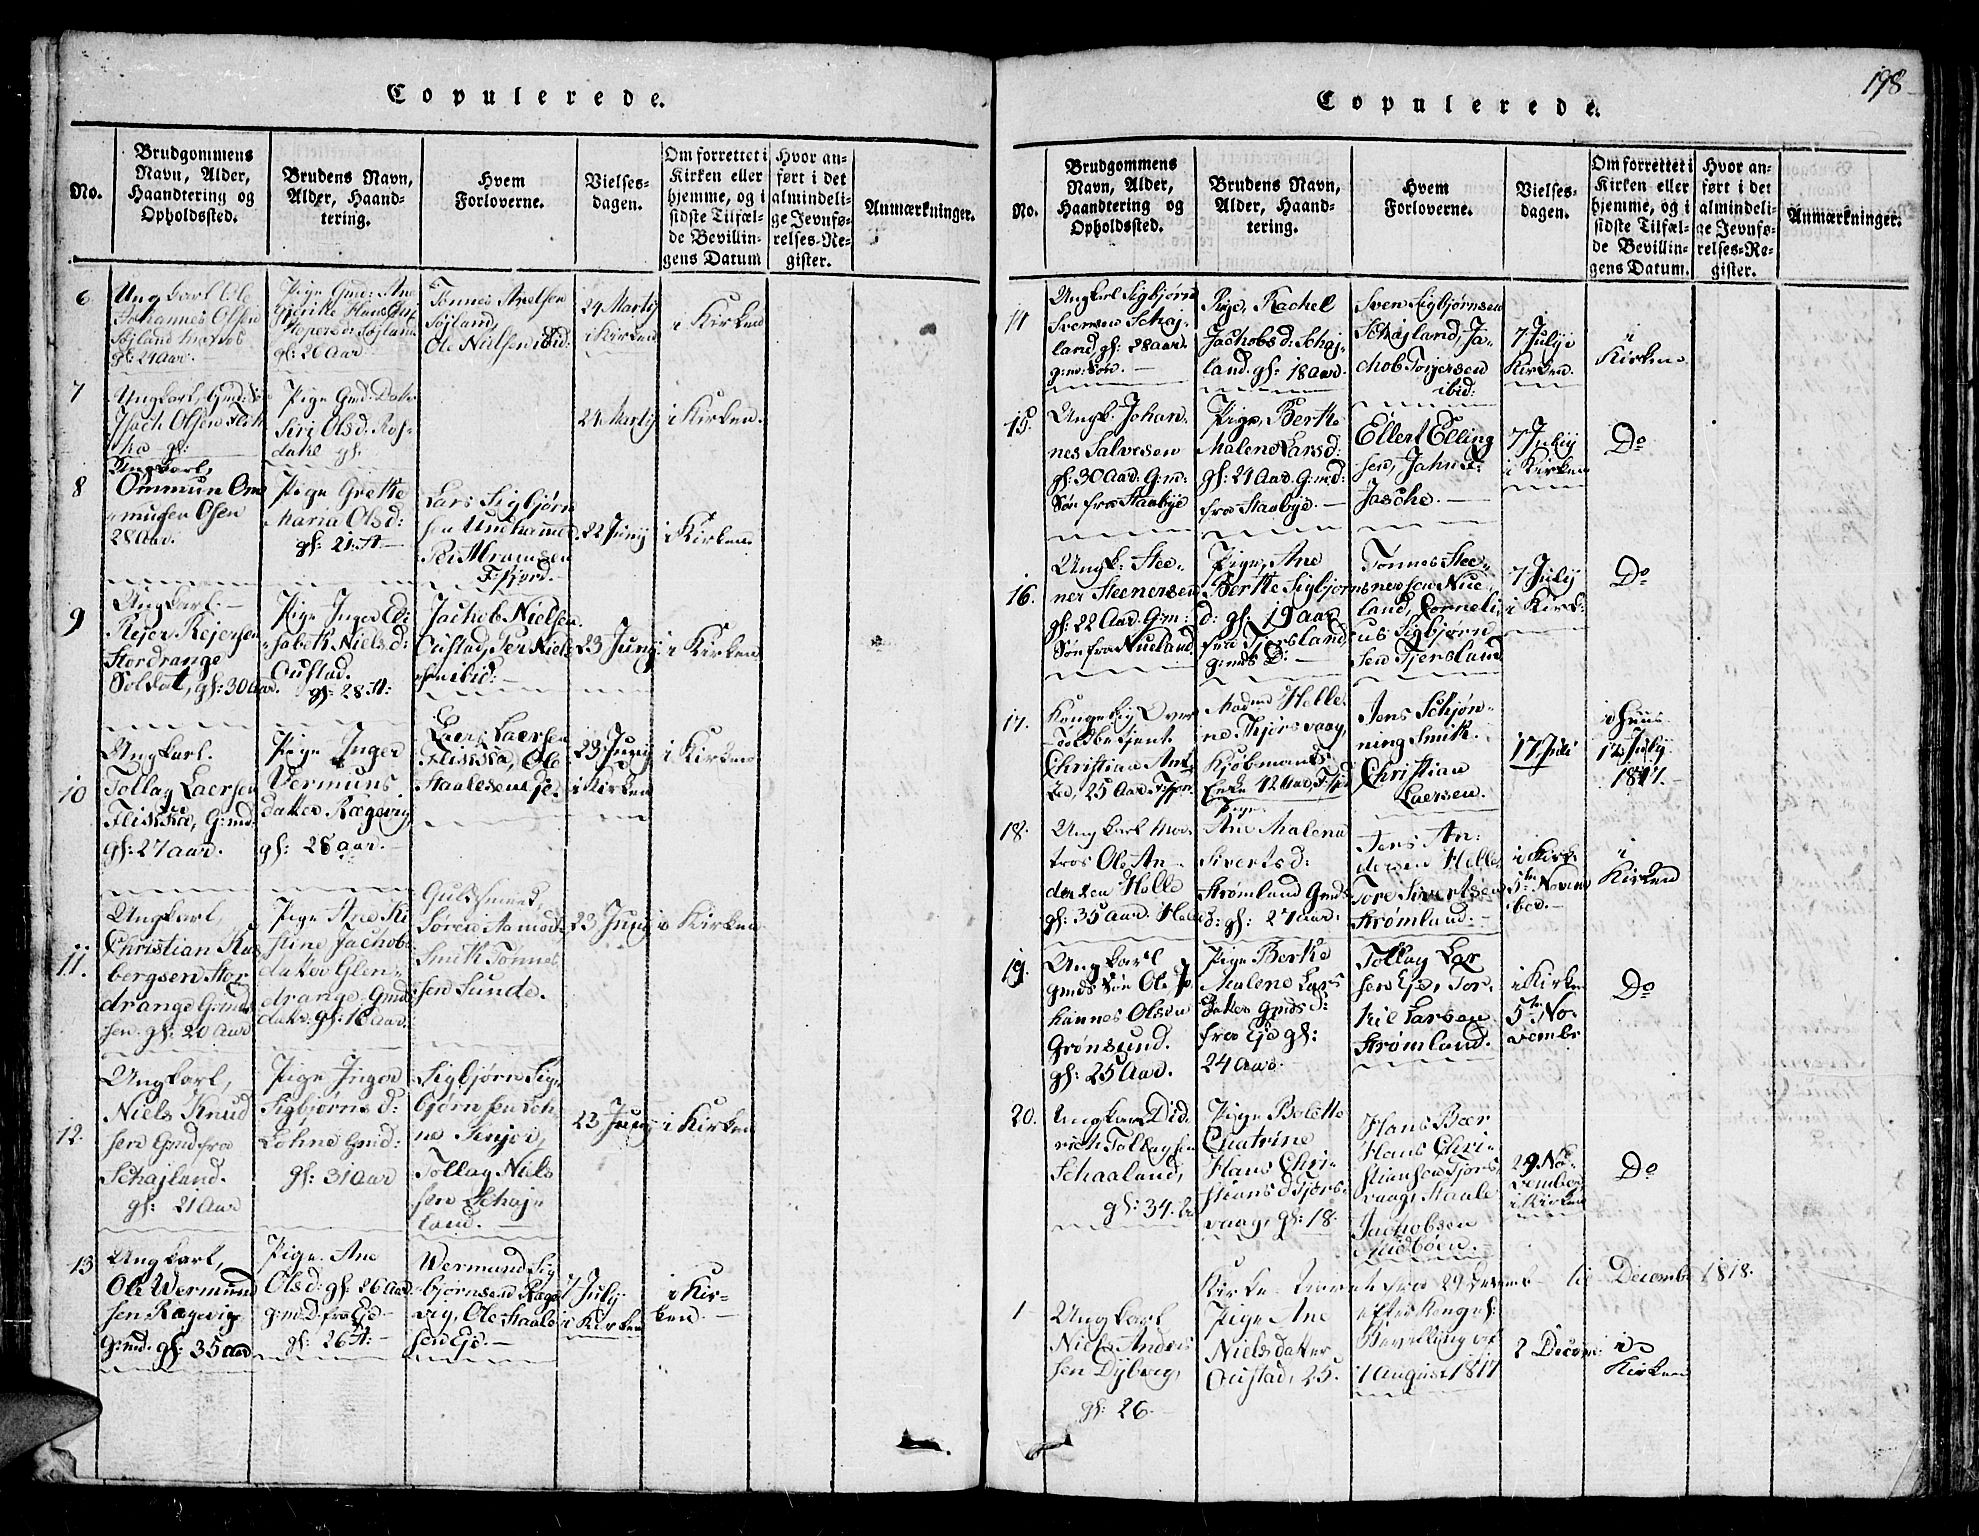 Copulerede.
No.
Brudgommens Navn, Alder, Haandtering og Opholdssted.
Brudens Navn, Alder, Haandtering.
Hvem Forloverne.
Vielsesdagen.
Om forrettet i Kirken eller hjemme, og i sidste Tilfælde Bevillingens Datum
Hvor anført i det almindelige Jevnførelses-Register.
Anmærkninger.
6
Ungkarl Ole
Johannes Olsen
Søjland
gl: 24 Aar.
Pige Gmd: Ane
Søjland
gl: 20 Aar
Tønnes Axelsen
Søjland,
Ole Nielsen ibid:
24 Martij
i Kirken
i Kirken
7
Ungkarl, Gmd:
Isach Olsen
gl:
Pige Gmd: Dat
Siri Olsd: Ros-
dahl gl:
24 Martij
i Kirken.
8
Ungkarl,
Ommun Om
musen Osen
28 Aar.
Pige Grethe
Maria Olsd:
gl: 21. A
Lars Sigbjørn
sen Undhammer
Per Abramsen
Fikjord.
22 Junij
i Kirken
9
Ungkarl.
Rejer Rejersen
Stordrange
Soldat, gl: 30 Aar.
Pige Inger Eli-
sabeth Nielsd:
Oustad.
gl: 28 A:
Jachob Nielsen
Oustad, Per Niels
sen ibid:
23 Junij
i Kirken
10
Ungkarl.
Tollag Laersen
Flikka, Gmd:
gl: 27 Aar.
Pige Inger
Vermuns
datter Rægevig,
gl: 28 Aar.
Laers Laersen
Flikka, Ole
Staalesen Eje
23 Junij
i Kirken
i Kirken
11.
Ungkarl,
Christian Ras
bergsen Stor
drange Gmds
sen. gl: 20 Aar
Pige Ane Ki
stine Jachobs
datter Glen-
drange Gmds
datr. gl: 16 Aar.
Guldsmed,
Søren Aamodt,
Smith Tønnes
sen Sunde.
23 Junij
i Kirken
12.
Ungkarl,
Niels Knud
sen Gmd fra
Schajland.
gl: 21 Aar
Pige Inger
Sigbjørnsd:
Løhne Gmd:
gl: 31 Aar
Sigbjørn Sig-
bjørnsen Løh
ne Senjor,
Tollag Niels
sen Schaj-
land.
23 Junij
i Kirken
13
Ungkarl,
Ole Wermund
sen Rægevig
Gmd. gl: 35 Aar
Pige Ane
Olsd: gl: 26 Aar
gmD. fra Eje
gl: 26 A:
Wermund Sig
bjørnsen Ræge
vig, Ole Staale
sen Eje.
7 July
i Kirken
i Kir-
ken.
198
Copulerede.
No.
Brudgommens Navn, Alder, Haandtering og Opholdssted.
Brudens Navn, Alder, Haandtering.
Hvem Forloverne.
Vielsesdagen.
Om forrettet i Kirken eller hjemme, og i sidste Tilfælde Bevillingens Datum.
Hvor anført i det almindelige Jevnførelses-Register.
Anmærkninger.
14
Ungkarl Sigbjørn
Svensen Schaj-
land, gl: 28 Aar.
g:m: Søn.
Pige, Rachel
Jachobsd: Schaj-
land. gl: 18 Aar.
Sven Sigbjørnsen
Schajland, Ja-
chob Torjersen
ibid:
7 Julij
Kirken.
i
Kirken
15.
Ungk. Johan-
nes Salvesen
gl: 30 Aar. G:m:
Søn fra Staabye
Pige, Berthe
Malene Larsd:
gl: 24 Aar. G:md:
fra Staabye.
Ellert Elling
sen, Jahns:
Jasche.
7 Julij
i Kirken
Do
16.
Ungk: Stee-
ner Steenersen
gl: 22 Aar. Gm:
Søn fra Nueland.
Pige, Ane
Berthe Sigbjørns
d: gl: 19 Aar
fra Tjorsland,
gmds D:
Tønnes Stee-
nersen Nue
land, Corneli-
us Sigbjørn
sen Tjersland
7 Julij
i Kirk:
Do
17.
Kongelig Over
Toldbetjent
Christian Am
25 Aar
Madme Helle
ne Thjorsvaag
Kjøbmands
Enke 42 Aar
Jens Schjøn-
ning Smith.
Christian
Laersen.
17 Juli
i Huus
12 July
1817.
18.
Ungkarl Ma-
tros Ole An-
dersen Helle
gl: 35 Aar. Helle
Pige
Ane Malena
Sivertsd:
Strømland Gmd:
d: gl: 27 Aar.
Jens An-
dersen Helle
Tore Sivertsen
Strømland:
i Kirk:
5te Novem
ber.
i
Kirken
19.
Ungkarl
Gmds Søn Ole Jo
hannes Olsen
Grønsund.
gl: 25 Aar.
Pige Berthe
Malene Lars
datter Gmds d:
fra Eje gl:
24 Aar.
Tollag Lar
sen Eje, Tor-
kil Larsen
Strømland.
i Kirken
5te No-
vembr
Do
20.
Ungkarl Did
rich Tollagsen
Schaaland,
gl: 34.
Pige Bolette
Chatrine
Hans Chri-
stians d Tjørs-
vaag, gl: 18.
Hans Bær
Hans Chri-
stiansen Tjørs-
vaag, Staale
Jachobsen
Midbøen.
29 No-
vember
i Kirken
Do
Kirke til Decembr 1818.
1
Ungkarl
Niels Anders
sen Dyberg,
gl: 26
Pige Ane
Nielsdatter
Oustad, 25.
efter Kongel:
Bevilling af
7 August 1817
2 Decem:
i
Kirken